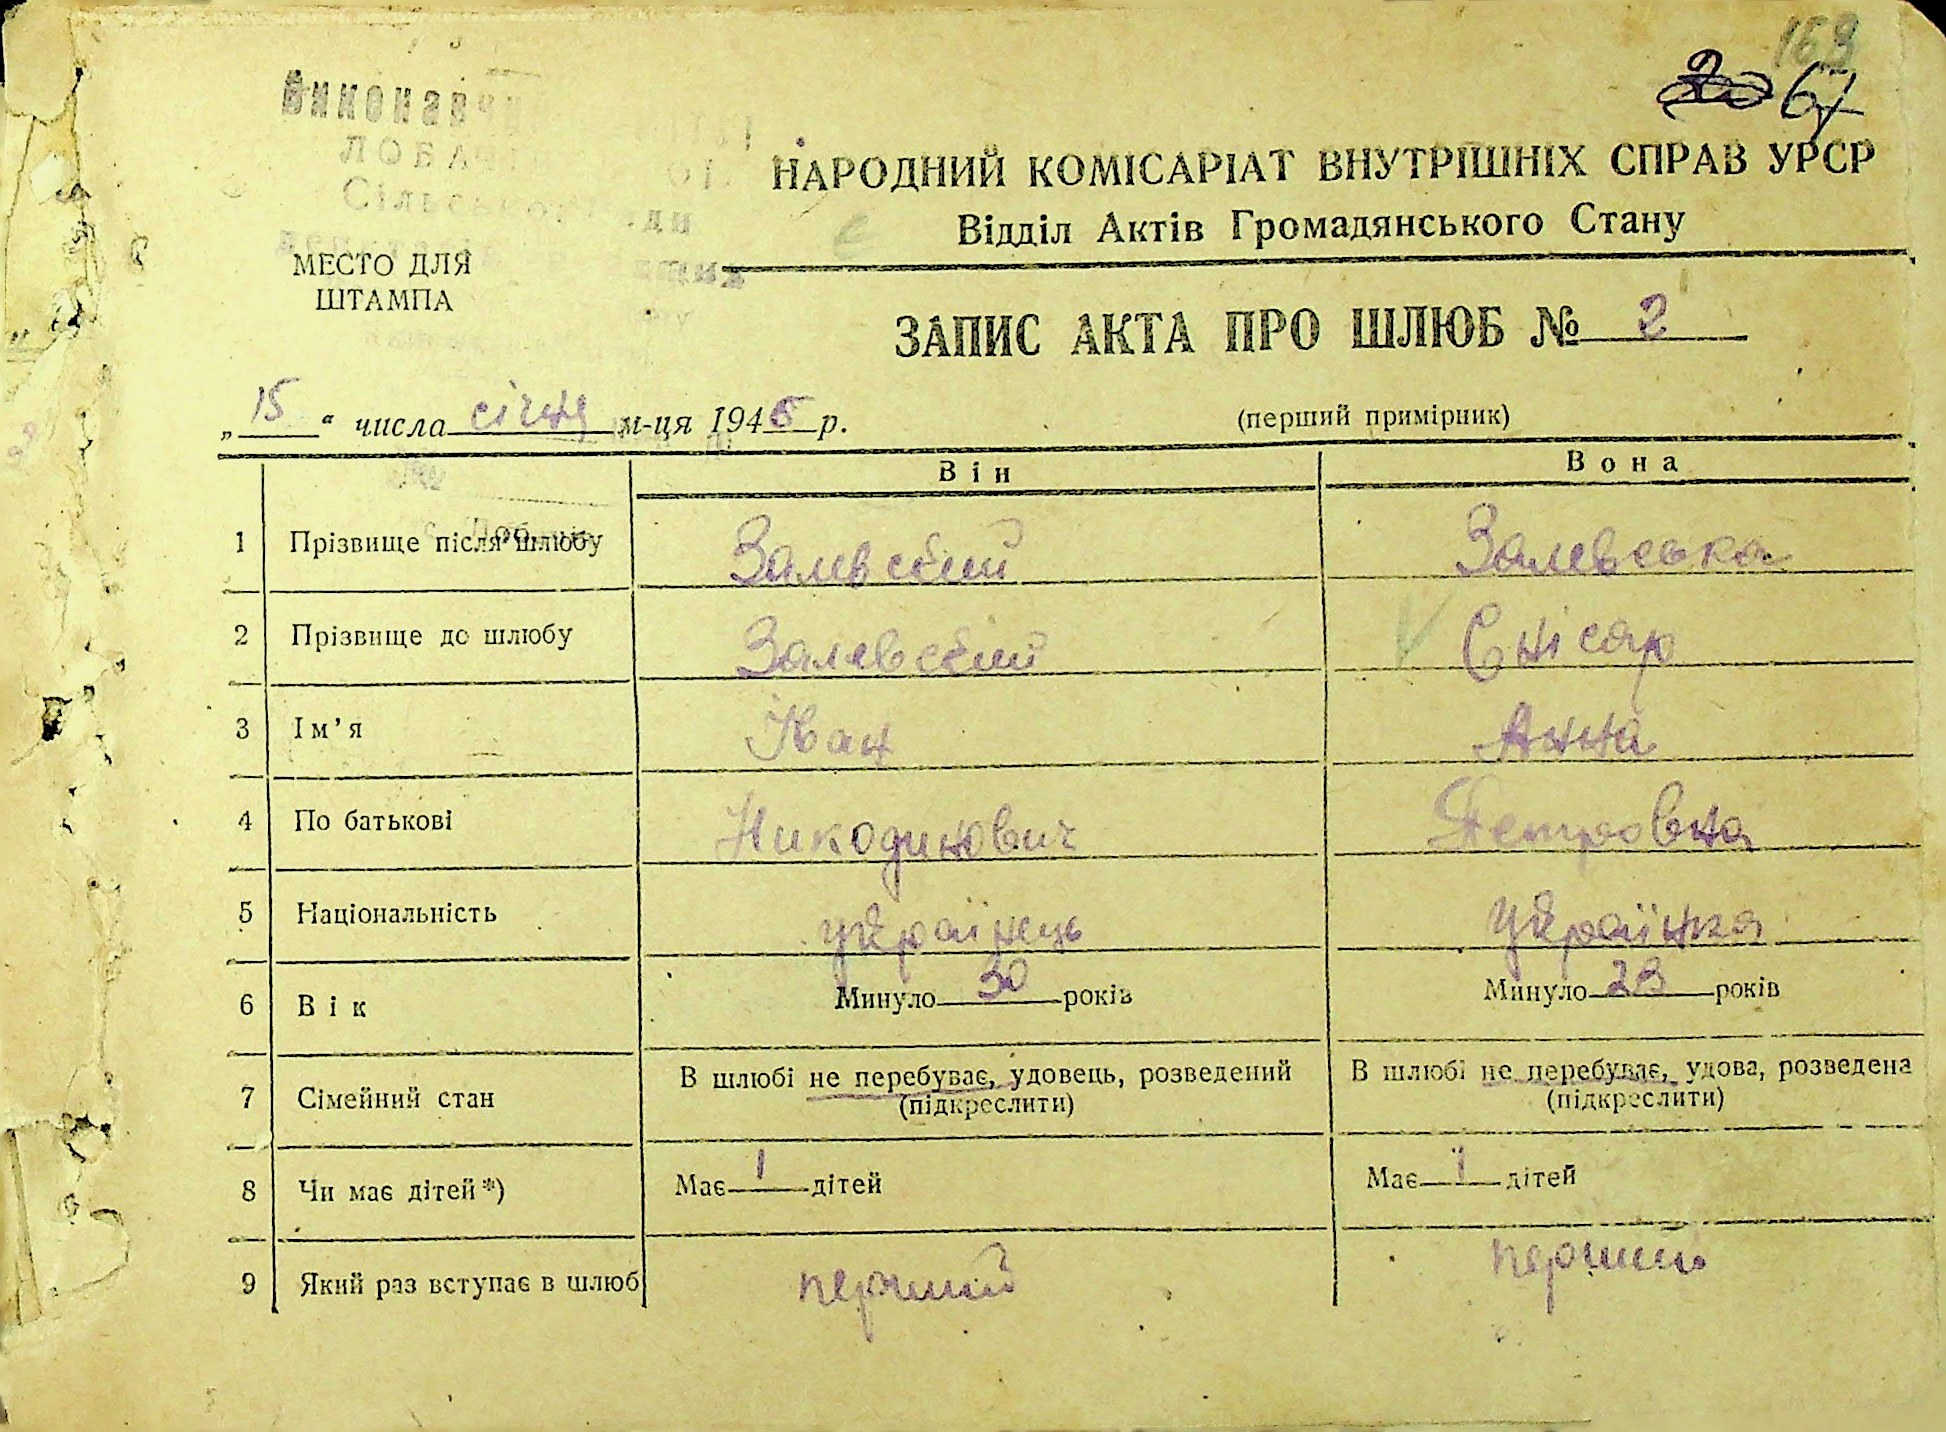 169
67
НАРОДНИЙ КОМІСАРІАТ ВНУТРІШНІХ СПРАВ УРСР
Відділ Актів Громадянського Стану
МЕСТО ДЛЯ
ШТАМПА
ЗАПИС АКТА ПРО ШЛЮБ № 2
„15“ числа січня м-ця 1945 р.
(перший примірник)
Він Вона
1 Прізвище після шлюбу Залевский Залевська
2 Прізвище до шлюбу Залевский Снісар
3 Ім’я Іван Анна
4 По батькові Никодимович Петровна
5 Національність українець українка
6 Вік Минуло 30 років Минуло 23 років
7 Сімейний стан В шлюбі не перебуває, удовець, розведений (підкреслити) В шлюбі не перебуває, удова, розведена (підкреслити)
8 Чи має дітей*) Має 1 дітей Має 1 дітей
9 Який раз вступає в шлюб перший перший